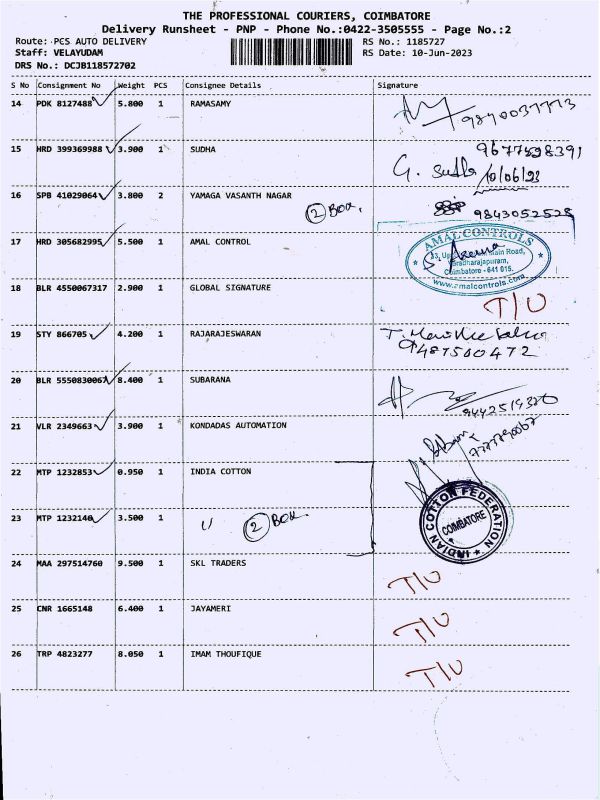 THE PROFESSIONAL COURIERS, COIMBATORE
Delivery Runsheet - PNP - Phone No.:0422-3505555 - Page No.:2
Route: PCS AUTO DELIVERY RS No.: 1185727
Staff: VELAYUDAM RS Date: 10-Jun-2023
DRS No.: DCJB118572702
S No Consignment No Weight PCS Consignee Details Signature
14 PDK 8127488 5.800 1 RAMASAMY
15 HRD 399369988 3.900 1 SUDHA 9677598391
G. Sudha 10/06/23
16 SPB 41029064 3.800 2 YAMAGA VASANTH NAGAR
2 Box, 9843052525
17 HRD 305682995 5.500 1 AMAL CONTROL AMAL CONTROLS
Main Road,
Varadharajapuram,
Coimbatore - 641 015.
www.amalcontrols.com
18 BLR 4550067317 2.900 1 GLOBAL SIGNATURE T/U
19 STY 866705 4.200 1 RAJARAJESWARAN
9487500472
20 BLR 5550830067 8.400 1 SUBARANA
21 VLR 2349663 3.900 1 KONDADAS AUTOMATION
22 MTP 1232853 0.950 1 INDIA COTTON
INDIAN COTTON FEDERATION
COIMBATORE
23 MTP 1232140 3.500 1 2 Box
24 MAA 297514760 9.500 1 SKL TRADERS T/U
25 CNR 1665148 6.400 1 JAYAMERI T/U
26 TRP 4823277 8.050 1 IMAM THOUFIQUE T/U